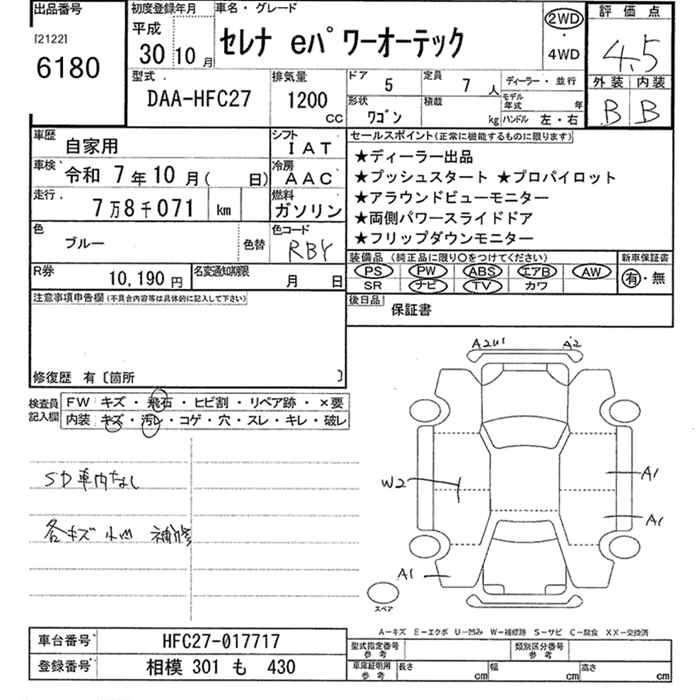 出品番号 初度登録年月 車名・グレード 評価点
[2122] 6180
平成 30年 10月
セレナ eパワーオーテック
2WD ・ 4WD
4.5
型式 DAA-HFC27
排気量 1200 CC
ドア 5 定員 7人 ディーラー・並行
形状 ワゴン 積載 kg モデル年式 年 ハンドル 左・右
外装 内装
B B
車歴 自家用
シフト IAT
車検 令和 7年 10月( 日)
冷房 AAC
走行 7万8千071 km
燃料 ガソリン
色 ブルー 色替 色コード RBY
R券 10,190円 名変通知期限 月 日
セールスポイント(正常に機能するものに限ります)
★ディーラー出品
★プッシュスタート ★プロパイロット
★アラウンドビューモニター
★両側パワースライドドア
★フリップダウンモニター
装備品 (純正品に限り○をつけてください) 新車保証書
PS PW ABS エアB AW
SR ナビ TV カワ 有・無
後日品 保証書
注意事項申告欄(不具合内容等は具体的に記入して下さい)
修復歴 有〔箇所 〕
検査員記入欄
FW キズ・飛石・ヒビ割・リペア跡・×要
内装 キズ・汚レ・コゲ・穴・スレ・キレ・破レ
SD車内なし
各キズ 小凹 補修
A2U1 A2
W2
A1
A1
A1
スペア
A-キズ E-エクボ U-凹み W-補修跡 S-サビ C-腐食 XX-交換済
車台番号 HFC27-017717
登録番号 相模 301 も 430
型式指定番号 参考 類別区分番号 参考
車庫証明用 参考 長さ cm 幅 cm 高さ cm